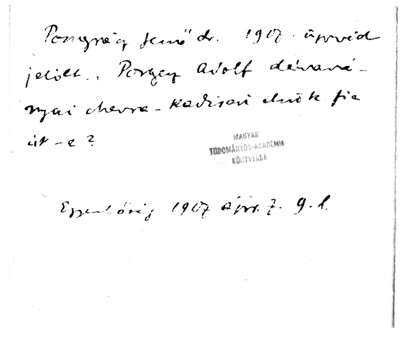 Pongrácz Jenő dr. 1907. ügyvéd
jelölt., Porgesz Adolf dévavá-
nyai chevra-kadisai elnök fia
itt-e?
MAGYAR
TUDOMÁNYOS AKADÉMIA
KÖNYVTÁRA
Egyenlőség 1907 ápr. 7. 9. l.